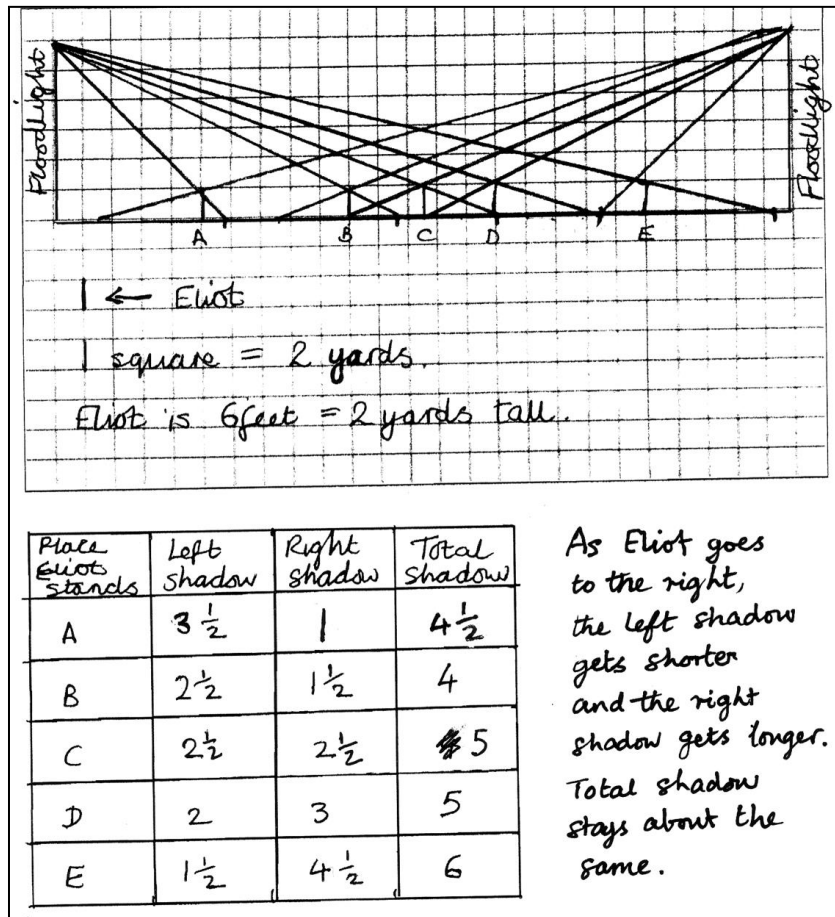 Floodlight
Floodlight
A B C D E
← Eliot
1 square = 2 yards.
Eliot is 6feet = 2 yards tall.
Place Eliot stands
Left shadow
Right shadow
Total shadow
A 3 1/2 1 4 1/2
B 2 1/2 1 1/2 4
C 2 1/2 2 1/2 5
D 2 3 5
E 1 1/2 4 1/2 6
As Eliot goes
to the right,
the left shadow
gets shorter
and the right
shadow gets longer.
Total shadow
stays about the
same.